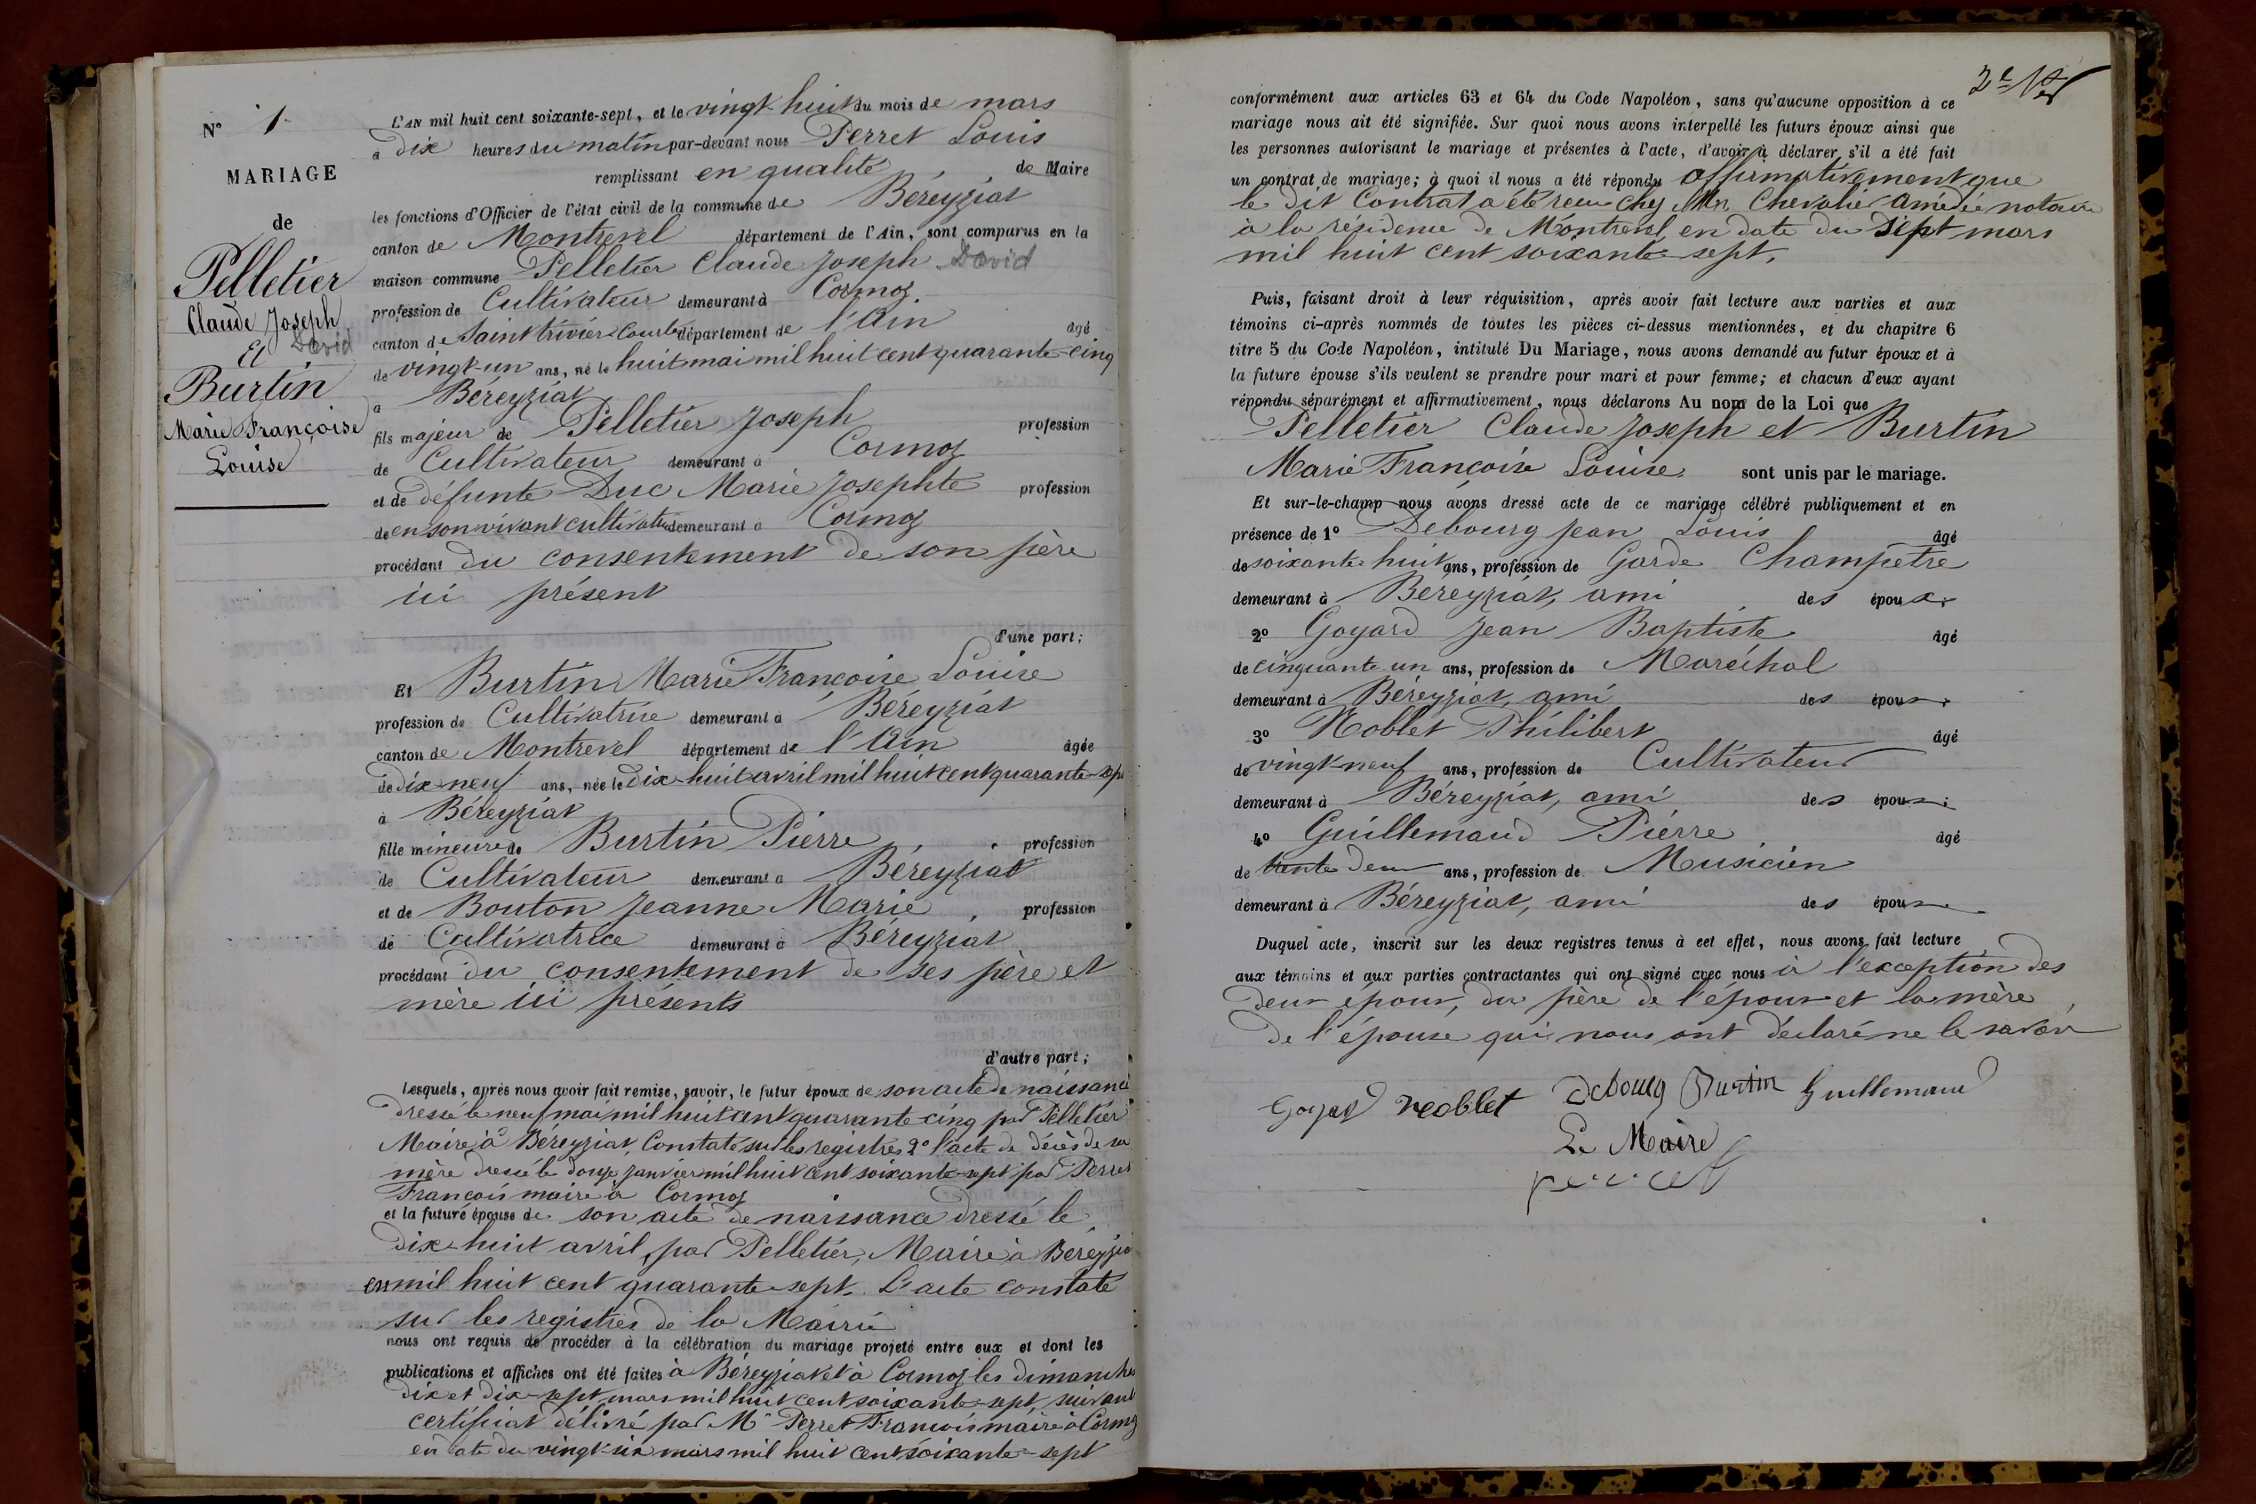 N° 1
MARIAGE
de
Pelletier
Claude Joseph
David
Et
Burtin
Marie Françoise
Louise
L'AN mil huit cent soixante-sept, et le vingt huit du mois de mars
à dix heures du matin par-devant nous Perret Louis
remplissant en qualité de Maire
les fonctions d'Officier de l'état civil de la commune de Béreyziat
canton de Montrevel département de l'Ain, sont comparus en la
maison commune Pelletier Claude Joseph David
profession de Cultivateur demeurant à Cormoz
canton de Saint trivier Courtes département de l'Ain âgé
de vingt-un ans, né le huit mai mil huit cent quarante-cinq
à Béreyziat
fils majeur de Pelletier Joseph profession
de Cultivateur demeurant à Cormoz
et de défunte Duc Marie Josephte profession
de en son vivant cultivatrice demeurant à Cormoz
procédant du consentement de son père
ici présent
d'une part;
Et Burtin Marie Françoise Louise
profession de Cultivatrice demeurant à Béreyziat
canton de Montrevel département de l'Ain âgée
de dix-neuf ans, née le dix-huit avril mil huit cent quarante-sept
à Béreyziat
fille mineure de Burtin Pierre profession
de Cultivateur demeurant à Béreyziat
et de Bouton Jeanne Marie profession
de Cultivatrice demeurant à Béreyziat
procédant du consentement de ses père et
mère ici présents
d'autre part;
Lesquels, après nous avoir fait remise, savoir, le futur époux de son acte de naissance
dressé le neuf mai mil huit cent quarante-cinq par Pelletier
Maire à Béreyziat, Constaté sur les registres 2° l'acte de décès de sa
mère dressé le douze janvier mil huit cent soixante-sept par Perret
François maire à Cormoz
et la future épouse de son acte de naissance dressé le
dix-huit avril, par Pelletier, Maire à Béreyziat
en mil huit cent quarante-sept. L'acte constaté
sur les registres de la Mairie
nous ont requis de procéder à la célébration du mariage projeté entre eux et dont les
publications et affiches ont été faites à Béreyziat et à Cormoz les dimanches
dix et dix-sept mars mil huit cent soixante-sept, suivant
certificat délivré par Mr Perret François maire à Cormoz
en date du vingt-six mars mil huit cent soixante-sept
conformément aux articles 63 et 64 du Code Napoléon, sans qu'aucune opposition à ce
mariage nous ait été signifiée. Sur quoi nous avons interpellé les futurs époux ainsi que
les personnes autorisant le mariage et présentes à l'acte, d'avoir à déclarer s'il a été fait
un contrat de mariage; à quoi il nous a été répondu affirmativement que
le dit Contrat a été reçu chez Mr. Chevalier Amédée notaire
à la résidence de Montrevel, en date du sept mars
mil huit cent soixante-sept.
Puis, faisant droit à leur réquisition, après avoir fait lecture aux parties et aux
témoins ci-après nommés de toutes les pièces ci-dessus mentionnées, et du chapitre 6
titre 5 du Code Napoléon, intitulé Du Mariage, nous avons demandé au futur époux et à
la future épouse s'ils veulent se prendre pour mari et pour femme; et chacun d'eux ayant
répondu séparément et affirmativement, nous déclarons Au nom de la Loi que
Pelletier Claude Joseph et Burtin
Marie Françoise Louise sont unis par le mariage.
Et sur-le-champ nous avons dressé acte de ce mariage célébré publiquement et en
présence de 1° Debourg Jean Louis âgé
de soixante-huit ans, profession de Garde Champêtre
demeurant à Béreyziat, ami des époux;
2° Goyard Jean Baptiste âgé
de cinquante un ans, profession de Maréchal
demeurant à Béreyziat, ami des époux;
3° Noblet Philibert âgé
de vingt-neuf ans, profession de Cultivateur
demeurant à Béreyziat, ami des époux;
4° Guillemaud Pierre âgé
de trente deux ans, profession de Musicien
demeurant à Béreyziat, ami des époux
Duquel acte, inscrit sur les deux registres tenus à cet effet, nous avons fait lecture
aux témoins et aux parties contractantes qui ont signé avec nous à l'exception des
deux époux, du père de l'époux et la mère
de l'épouse qui nous ont déclaré ne le savoir
Goyard Noblet Debourg Burtin Guillemaud
Le Maire
Perret